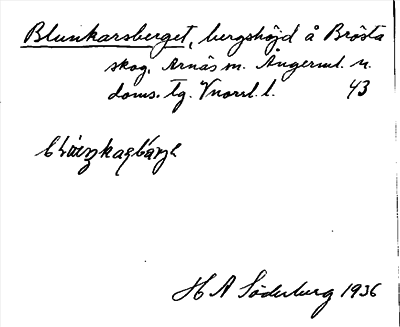 Blunkarsberget, bergshöjd å Brösta
skog. Arnäs m. Ångerml. n.
doms. tg. Vnorrl. l. 43
H A Söderberg 1936